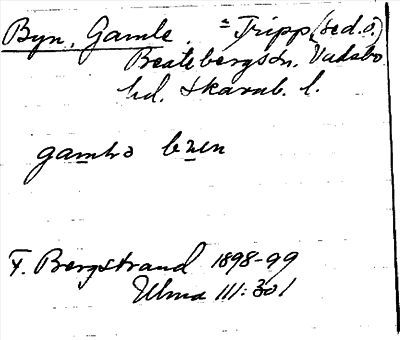 Byn, Gamle. = Tripp (se d.o.)
Beatebergs sn. Vadsbo
hd. Skarab. l.
gamlɔ byen
F. Bergstrand 1898-99
Ulma 111:301